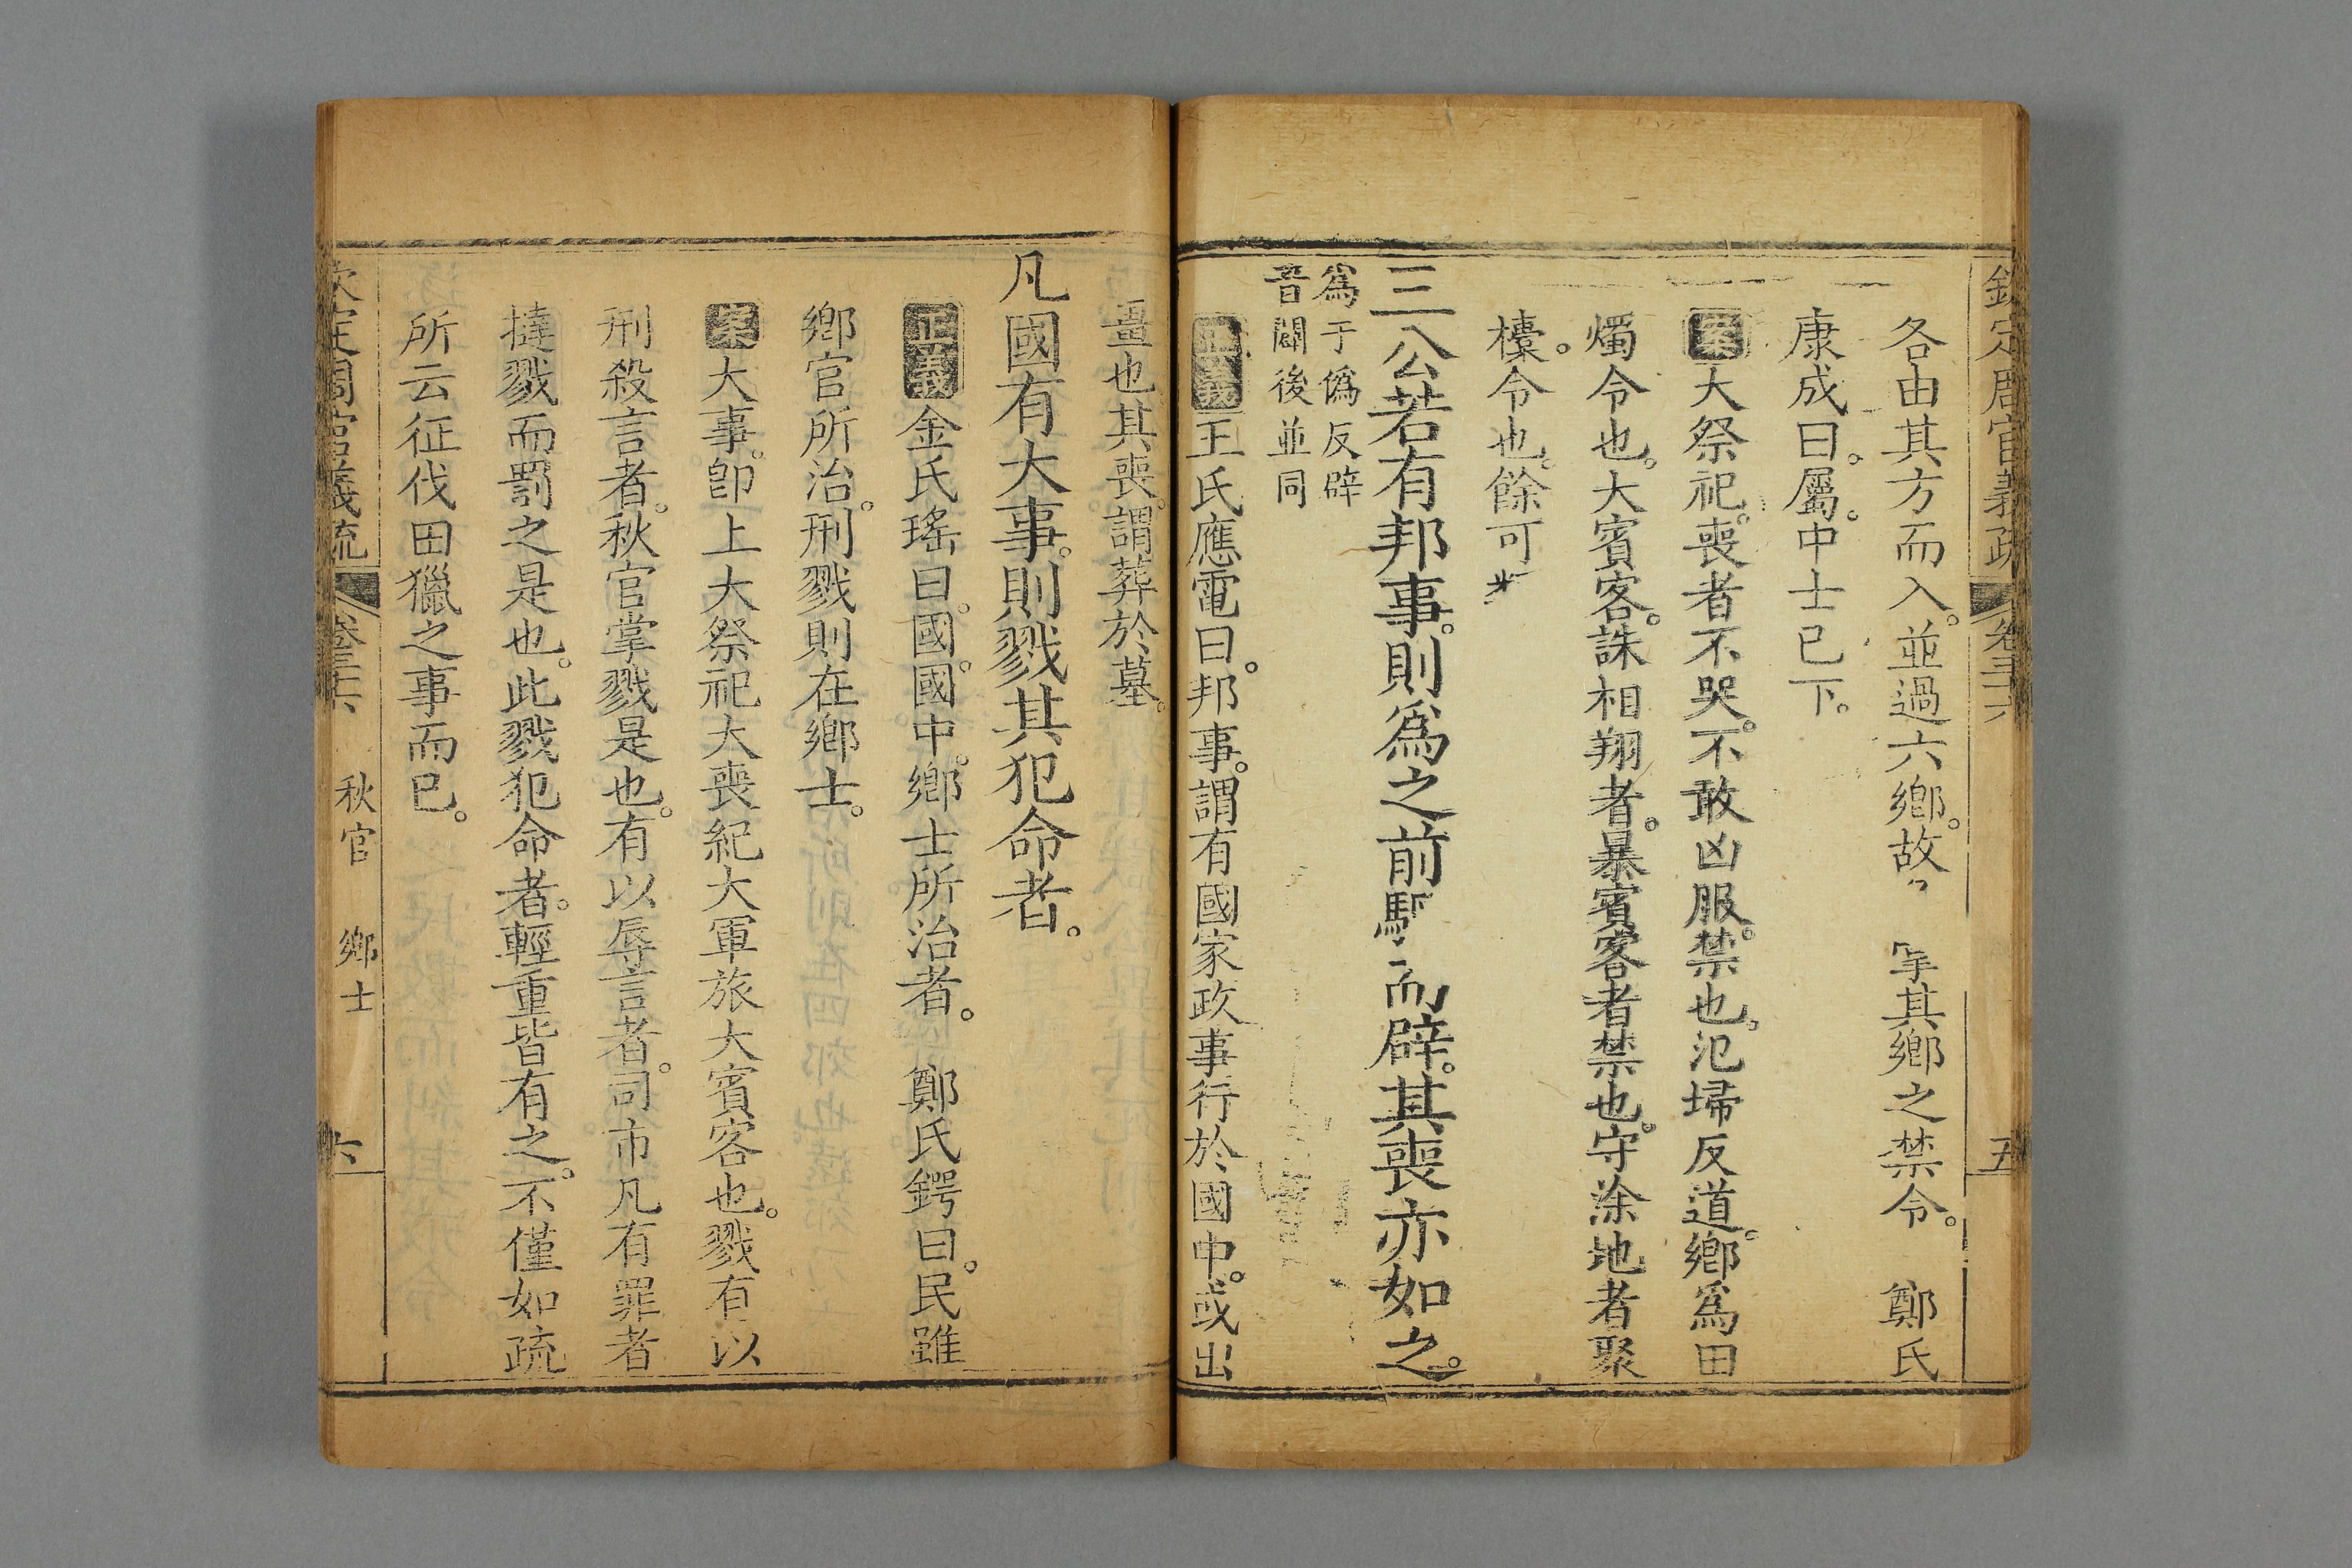 欽定周官義疏 卷三十六 五
各由其方而入。並過六鄉。故 掌其鄉之禁令。 鄭氏
康成曰。屬。中士已下。
案大祭祀。喪者不哭。不敢凶服。禁也。氾埽反道。鄉爲田
燭令也。大賓客。誅相翔者。暴賓客者禁也。守涂地者聚
櫜。令也。餘可
三公若有邦事。則爲之前驅而辟。其喪亦如之。
爲于僞反辟
音闢後並同
正義王氏應電曰。邦事。謂有國家政事行於國中。或出
畺也其喪。謂葬於墓。
凡國有大事。則戮其犯命者。
正義金氏瑤曰。國。國中。鄉士所治者。 鄭氏鍔曰。民雖
鄉官所治。刑戮則在鄉士。
案大事。卽上大祭祀大喪紀大軍旅大賓客也。戮有以
刑殺言者。秋官掌戮是也。有以辱言者。司市凡有罪者
撻戮而罰之是也。此戮犯命者。輕重皆有之。不僅如疏
所云征伐田獵之事而已。
欽定周官義疏 卷三十六 秋官 鄉士 六